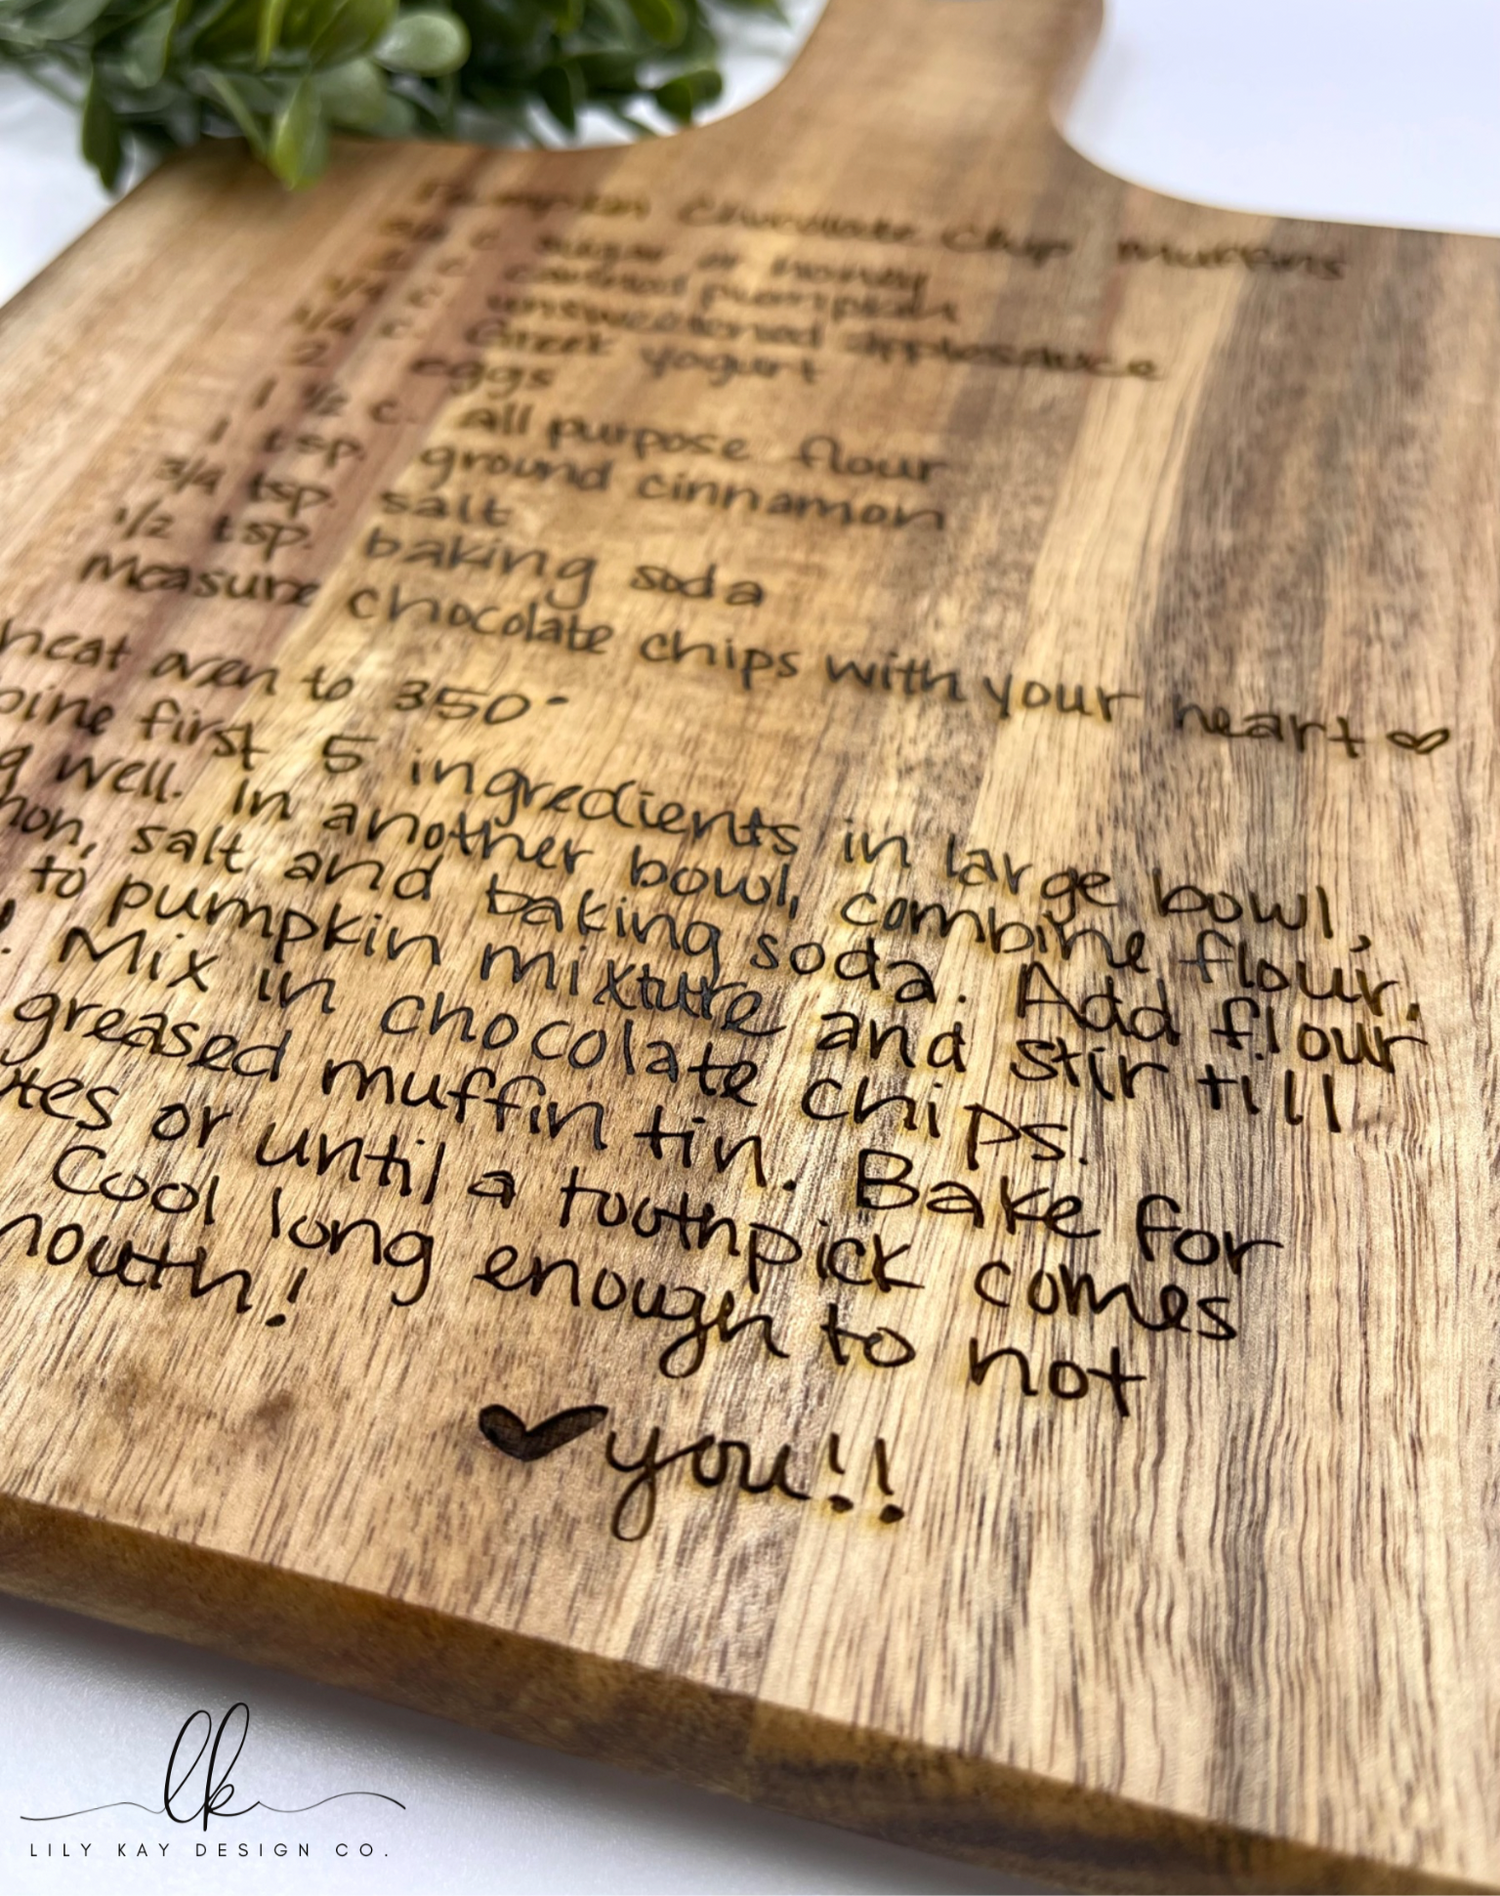 Pumpkin Chocolate Chip Muffins
c. sugar or honey
c. canned pumpkin
1/4 c. unsweetened applesauce
1/4 c. Greek yogurt
2 eggs
1 1/2 c. all purpose flour
1 tsp. ground cinnamon
3/4 tsp. salt
1/2 tsp. baking soda
Measure chocolate chips with your heart ♡
heat oven to 350°
bine first 5 ingredients in large bowl,
g well. In another bowl, combine flour,
mon, salt and baking soda. Add flour
to pumpkin mixture and stir till
. Mix in chocolate chips.
greased muffin tin. Bake for
tes or until a toothpick comes
Cool long enough to not
mouth!
♥ you!!
lk
LILY KAY DESIGN CO.